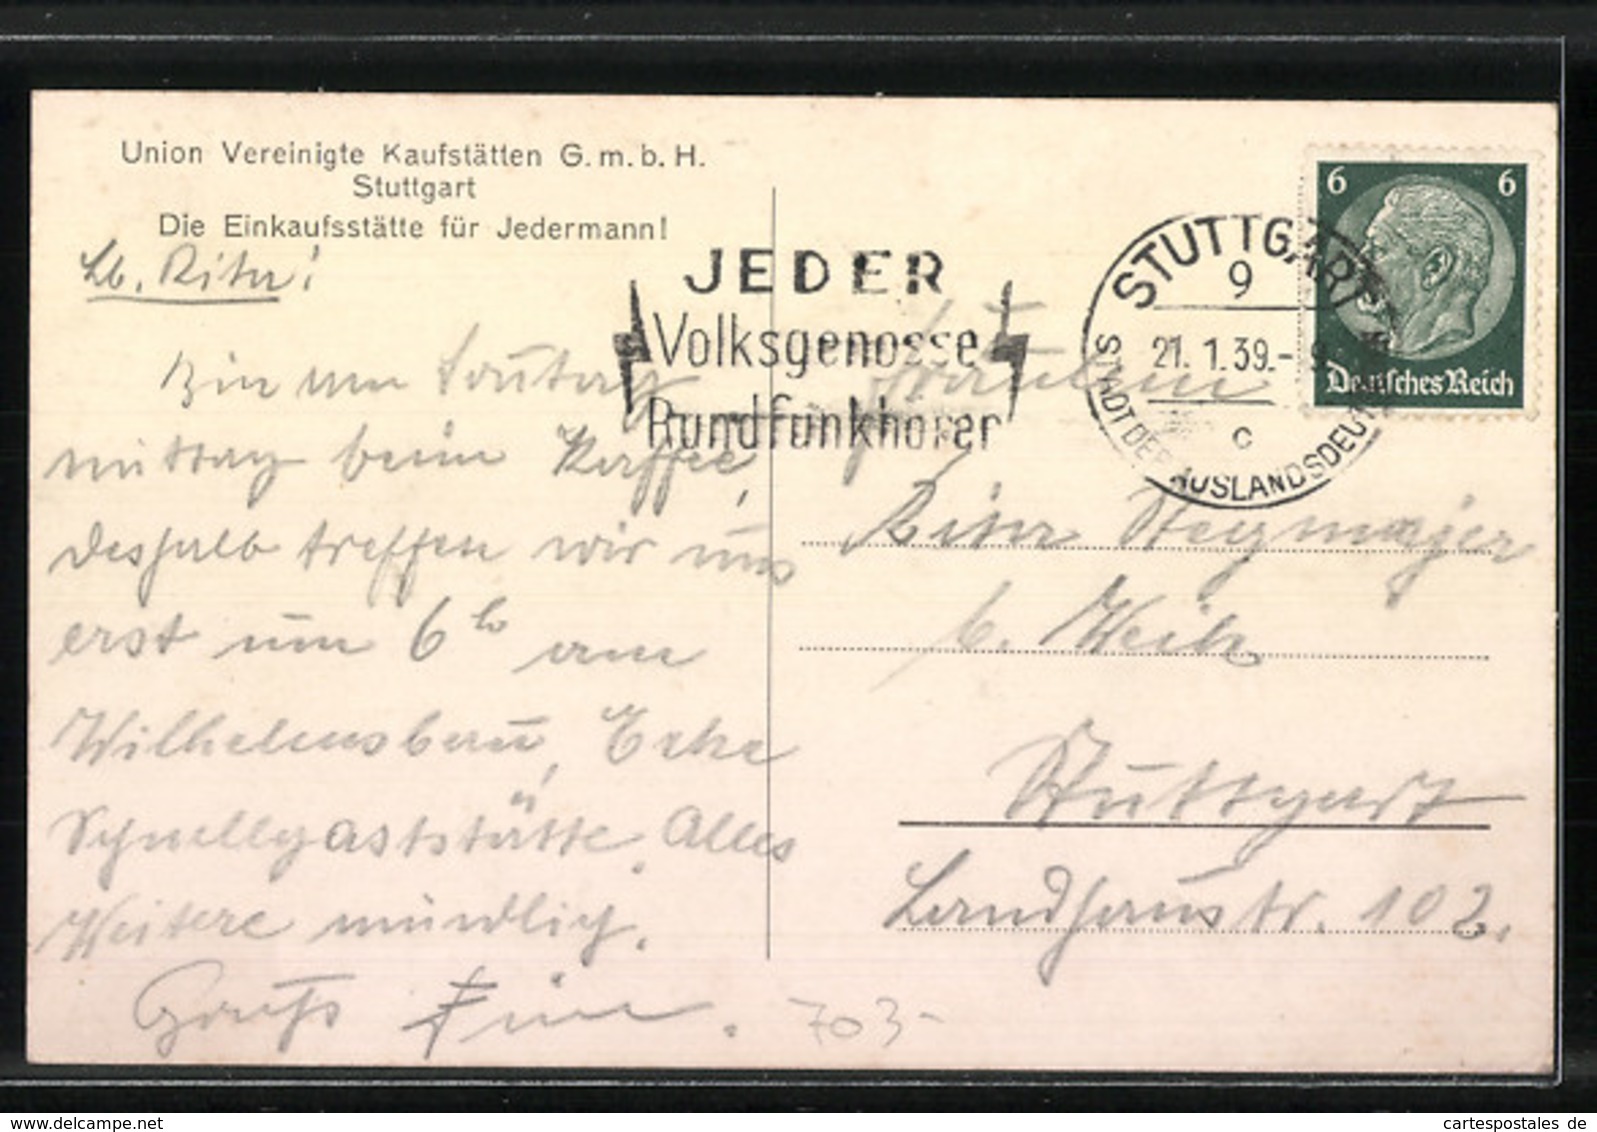 Union Vereinigte Kaufstätten G.m.b.H.
Stuttgart
Die Einkaufsstätte für Jedermann!
Lb. Rita!
Bin am Sonntag
mittag beim Kaffee,
deshalb treffen wir uns
erst um 6 h am
Wilhelmsbau, Ecke
Schnellgaststätte. Alles
Weitere mündlich.
Gruß
703-
JEDER
Volksgenosse
Rundfunkhörer
STUTTGART
9
21.1.39.-9
c
STADT DER AUSLANDSDEUT
6 6
Deutsches Reich
Fräulein
Rita Stegmajer
b. Weik
Stuttgart
Landhausstr. 102.
www.cartespostales.de
cartespostales de